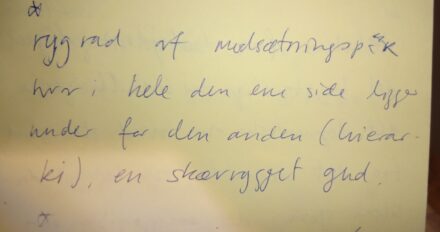 *
rygrad af modsætningspar
hvor i hele den ene side ligger
under for den anden (hierar-
ki), en skærvgget gud.
*